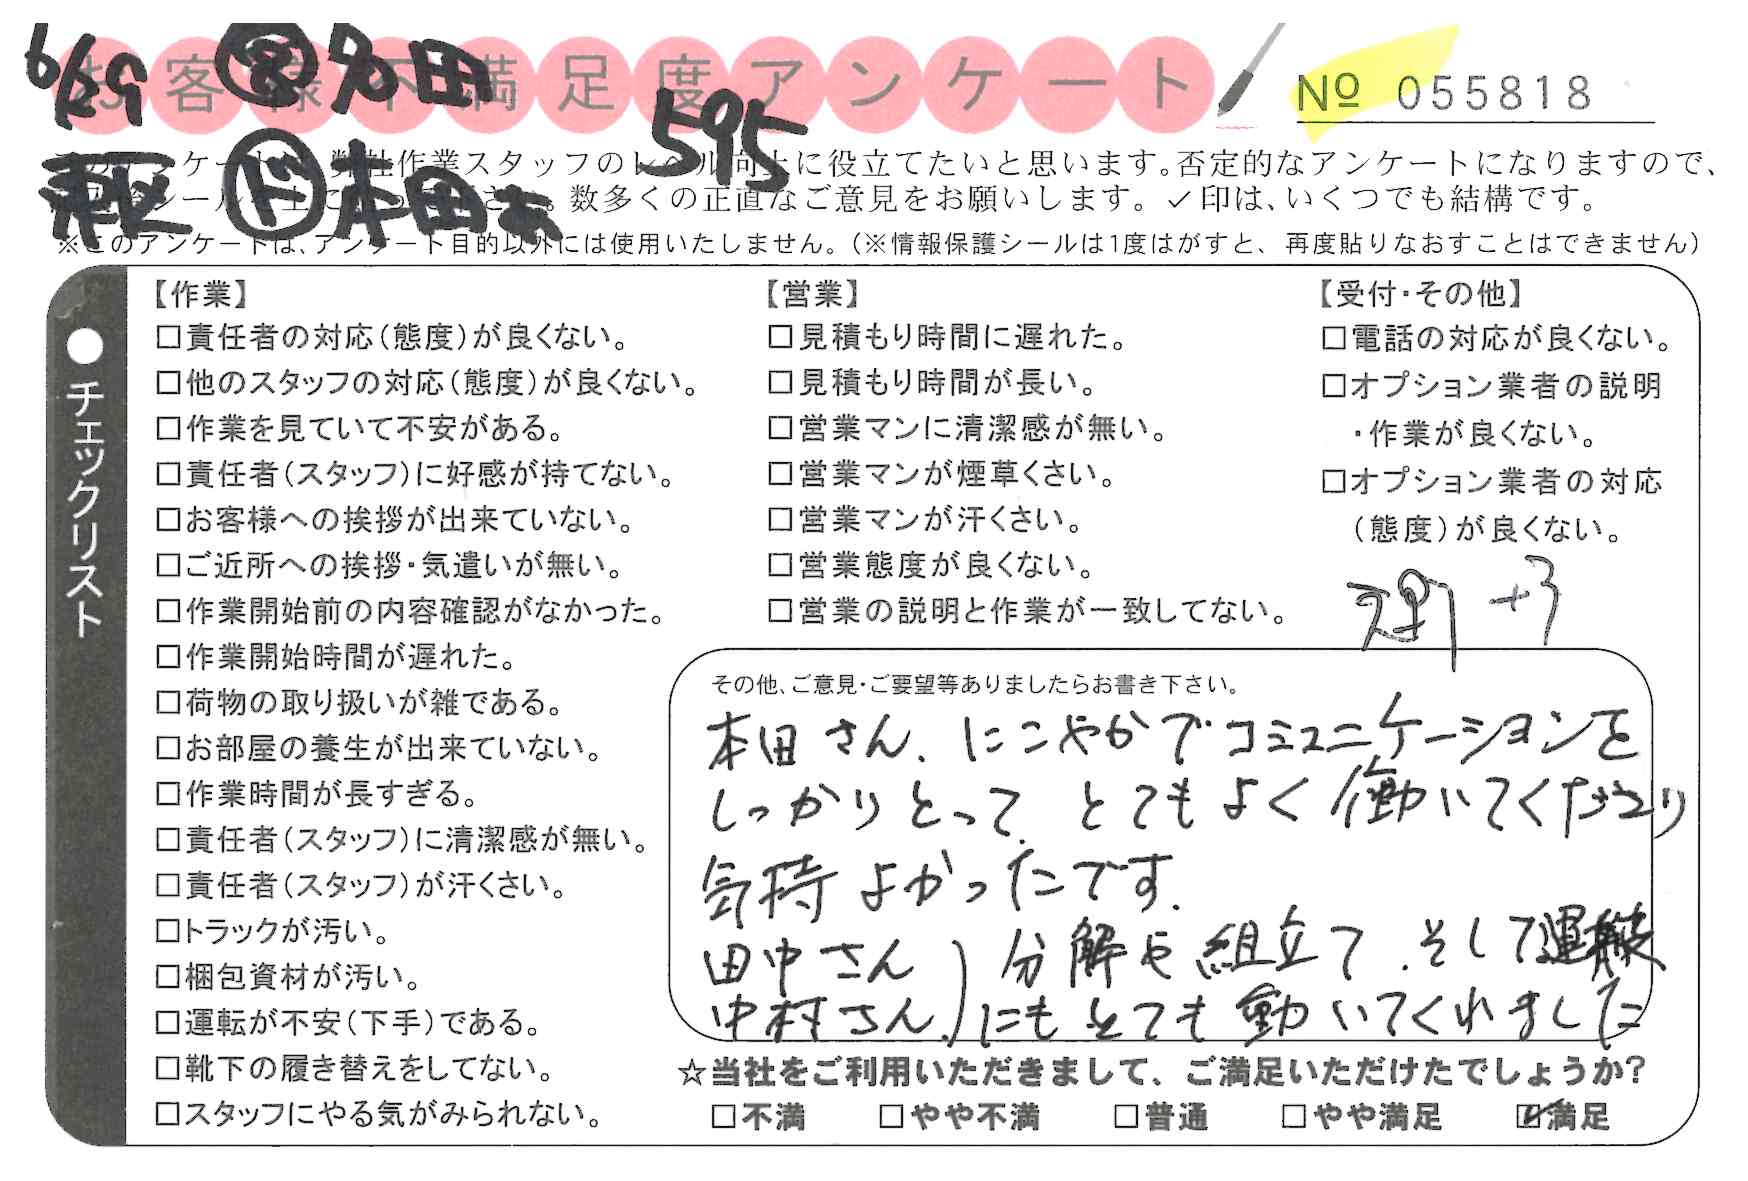 6/29 多田
お客様不満足度アンケート
595
№ 055818
このアンケートは、弊社作業スタッフのレベル向上に役立てたいと思います。否定的なアンケートになりますので、
ド 本田
シールを上に 数多くの正直なご意見をお願いします。✓印は、いくつでも結構です。
※このアンケートは、アンケート目的以外には使用いたしません。(※情報保護シールは1度はがすと、再度貼りなおすことはできません)
●チェックリスト
【作業】
□責任者の対応(態度)が良くない。
□他のスタッフの対応(態度)が良くない。
□作業を見ていて不安がある。
□責任者(スタッフ)に好感が持てない。
□お客様への挨拶が出来ていない。
□ご近所への挨拶・気遣いが無い。
□作業開始前の内容確認がなかった。
□作業開始時間が遅れた。
□荷物の取り扱いが雑である。
□お部屋の養生が出来ていない。
□作業時間が長すぎる。
□責任者(スタッフ)に清潔感が無い。
□責任者(スタッフ)が汗くさい。
□トラックが汚い。
□梱包資材が汚い。
□運転が不安(下手)である。
□靴下の履き替えをしてない。
□スタッフにやる気がみられない。
【営業】
□見積もり時間に遅れた。
□見積もり時間が長い。
□営業マンに清潔感が無い。
□営業マンが煙草くさい。
□営業マンが汗くさい。
□営業態度が良くない。
□営業の説明と作業が一致してない。
【受付・その他】
□電話の対応が良くない。
□オプション業者の説明
・作業が良くない。
□オプション業者の対応
(態度)が良くない。
+3
その他、ご意見・ご要望等ありましたらお書き下さい。
本田さん、にこやかでコミュニケーションを
しっかりとって、とてもよく働いてくださり
気持よかったです。
田中さん)分解や組立て、そして運搬
中村さん)にもとても動いてくれました
☆当社をご利用いただきまして、ご満足いただけたでしょうか?
□不満 □やや不満 □普通 □やや満足 ☑満足